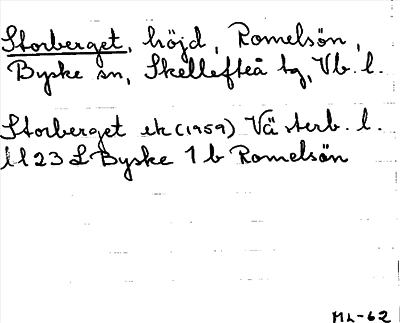 Storberget, höjd, Romelsön,
Byske sn, Skellefteå tg, Vb. l.
Storberget ek (1959) Västerb. l.
ll 23 L Byske 1 b Romelsön
ML-62